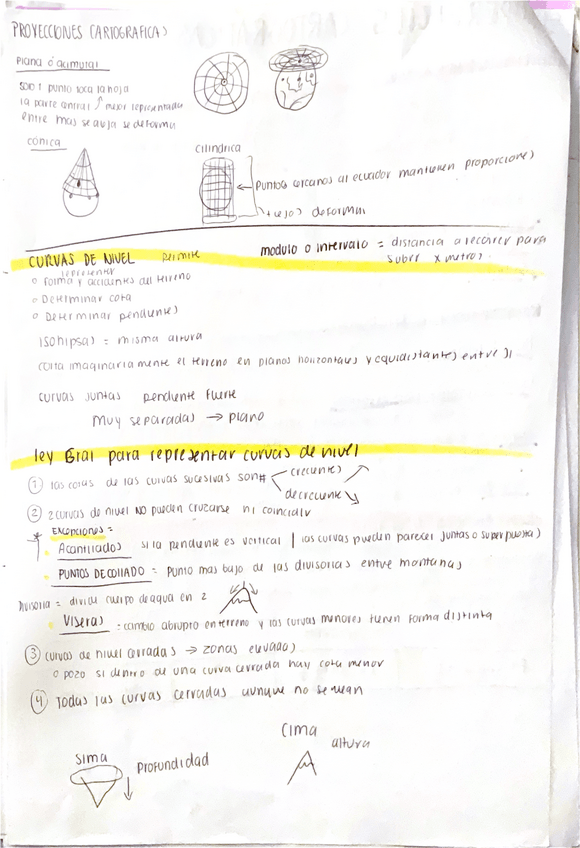 PROYECCIONES CARTOGRAFICAS
Plana o acimutal
solo 1 punto toca la hoja
la parte central mejor representada
entre mas se aleja se deforma
cónica
cilindrica
Puntos cercanos al ecuador mantienen proporciones
+ lejos deforman
CURVAS DE NIVEL permite
modulo o intervalo = distancia a recorrer para
subir x metros.
representar
o Forma y accidentes del terreno
o Determinar cota
o Determinar pendientes
isohipsas = misma altura
corta imaginariamente el terreno en planos horizontales y equidistantes entre si
curvas juntas pendiente fuerte
muy separadas → plano
ley Gral para representar curvas de nivel
① las cotas de las curvas sucesivas son ≠ crecientes
decreciente
② 2 curvas de nivel NO pueden cruzarse ni coincidir
* Excepciones =
Acantilados si la pendiente es vertical | las curvas pueden parecer juntas o superpuestas
PUNTOS DE COLLADO = Punto mas bajo de las divisorias entre montañas
Divisoria = divide cuerpo de agua en 2
Viseras = cambio abrupto en terreno y las curvas menores tienen forma distinta
③ curvas de nivel cerradas → zonas elevadas
o pozo si dentro de una curva cerrada hay cota menor
④ Todas las curvas cerradas aunque no se vean
Cima
altura
sima
profundidad